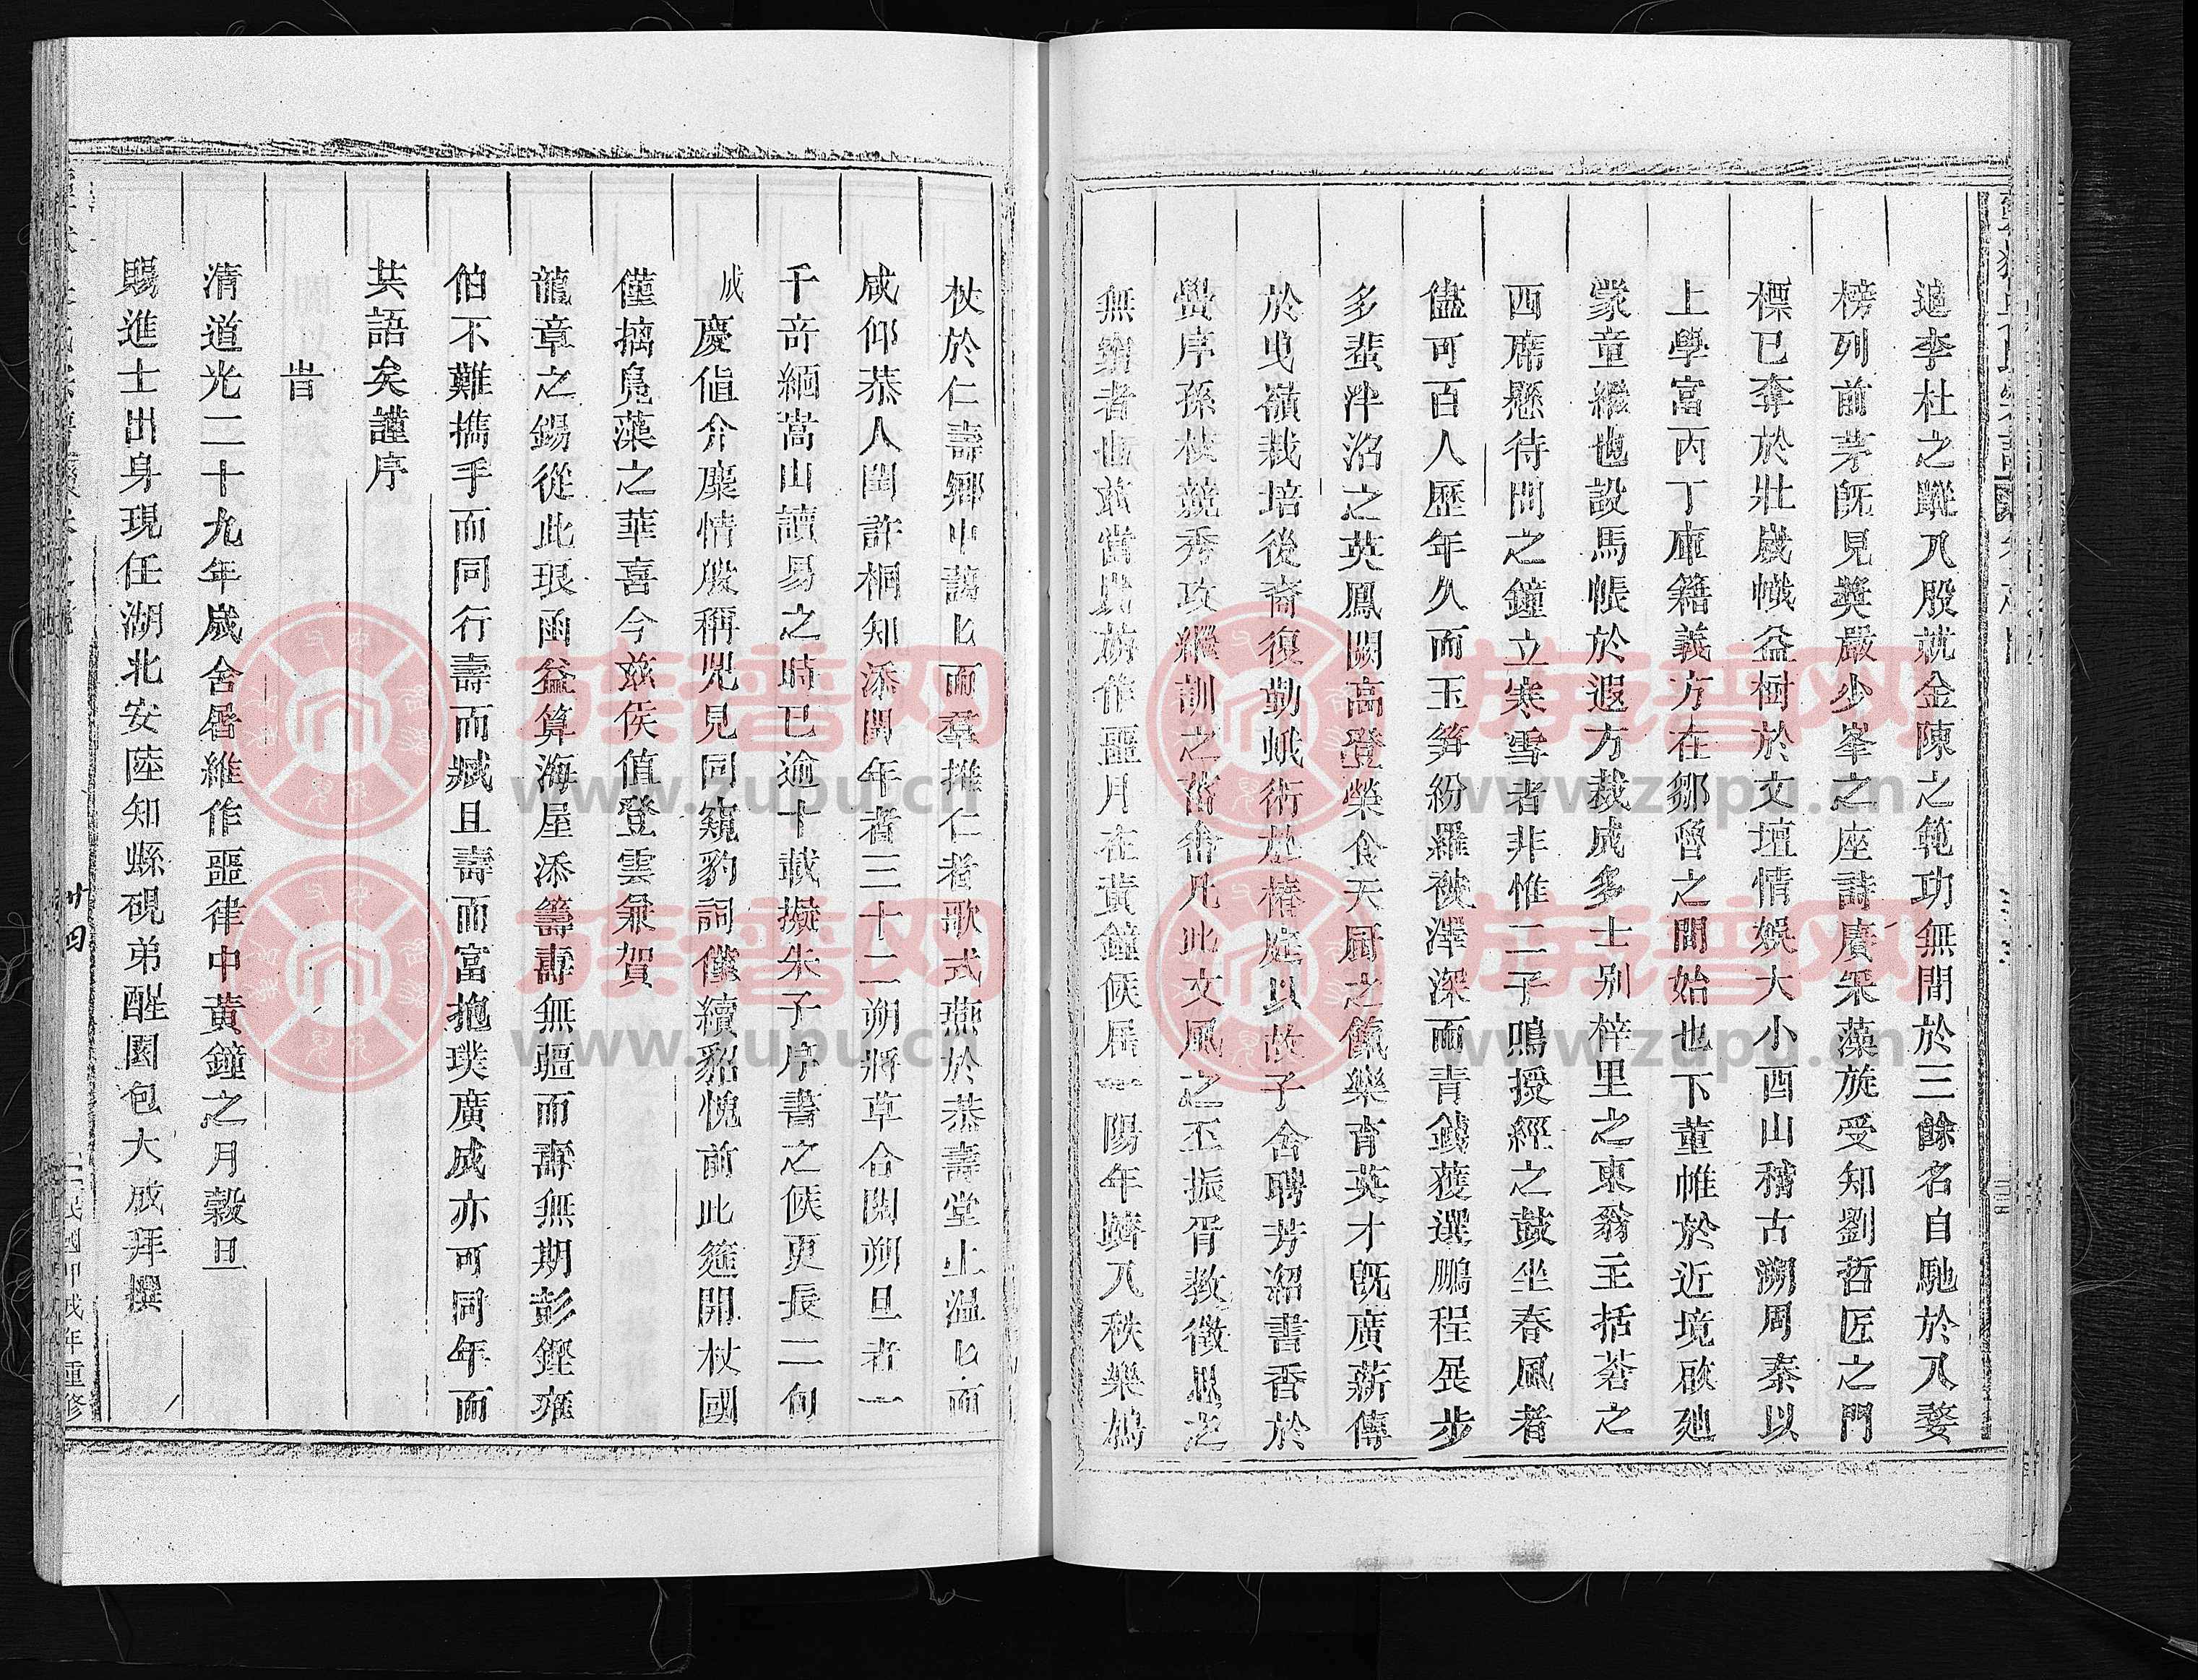 追李杜之蹤八股就金陳之範功無間於三餘名自馳於八婺
榜列前茅既見獎嚴少峯之座詩賡采藻旋受知劉哲匠之門
標已奪於壯歲幟益樹於文壇情娛大小酉山稽古溯周秦以
上學富丙丁庫籍義方在鄒魯之間始也下董帷於近境啟廸
蒙童繼也設馬帳於遐方裁成多士别梓里之東翁主括蒼之
西席懸待問之鐘立寒雪者非惟二子鳴授經之鼓坐春風者
儘可百人歷年久而玉筍紛羅被澤深而青錢獲選鵬程展步
多蜚泮沼之英鳳闕高登榮食天厨之餼樂育英才旣廣薪傳
於曳嶺栽培後裔復勤蛾術於椿庭以故子舍聘芳沼書香於
黌序孫枝競秀攻繼訓之菑畬凡此文風之丕振胥教徵思之
無窮者也兹當歲旃作噩月在黃鐘候居一陽年躋八秩樂鳩
杖於仁壽鄉中藹匕而羣推仁者歌式燕於恭壽堂上溫匕而
咸仰恭人閏許桐知添閏年者三十二朔將草合閱朔旦者一
千奇緬嵩山讀易之時已逾十載擬朱子序書之候更長二旬
成慶値介麋情殷稱兕見同窺豹詞僅續貂愧前此筵開杖國
僅摛鳧藻之華喜今玆侯值登雲彙賀
龍章之錫從此珢函益算海屋添籌壽無疆而壽無期彭鏗雍
伯不難攜手而同行壽而臧且壽而富抱璞廣成亦可同年而
共語矣謹序
旹
清道光二十九年歲舍屠維作噩律中黃鐘之月穀旦
賜進士出身現任湖北安陸知縣硯弟醒園包大成拜撰
廿四
民國甲戌年重修
族譜网
www.zupu.cn
族譜网
www.zupu.cn
族譜网
www.zupu.cn
族譜网
www.zupu.cn